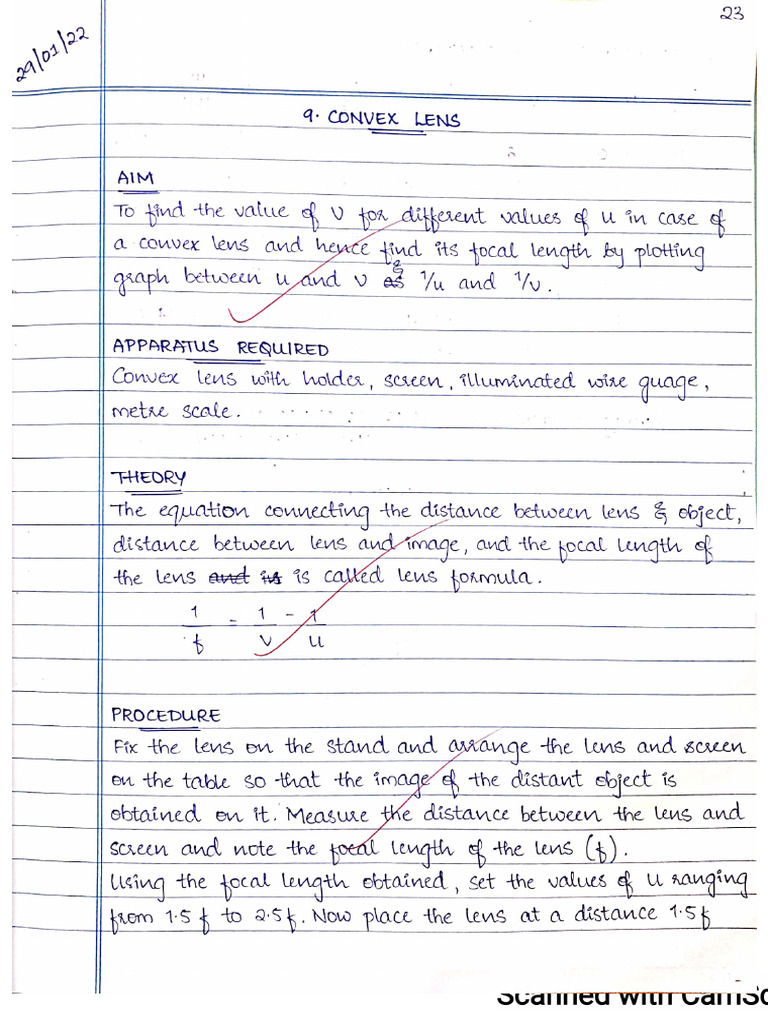 23
29/01/22
9. CONVEX LENS
AIM
To find the value of v for different values of u in case of
a convex lens and hence find its focal length by plotting
graph between u and v as & 1/u and 1/v.
APPARATUS REQUIRED
Convex lens with holder, screen, illuminated wire guage,
metre scale.
THEORY
The equation connecting the distance between lens & object,
distance between lens and image, and the focal length of
the lens and is is called lens formula.
1/f = 1/v - 1/u
PROCEDURE
Fix the lens on the stand and arrange the lens and screen
on the table so that the image of the distant object is
obtained on it. Measure the distance between the lens and
screen and note the focal length of the lens (f).
Using the focal length obtained, set the values of u ranging
from 1.5 f to 2.5f. Now place the lens at a distance 1.5f
Scanned with CamSc